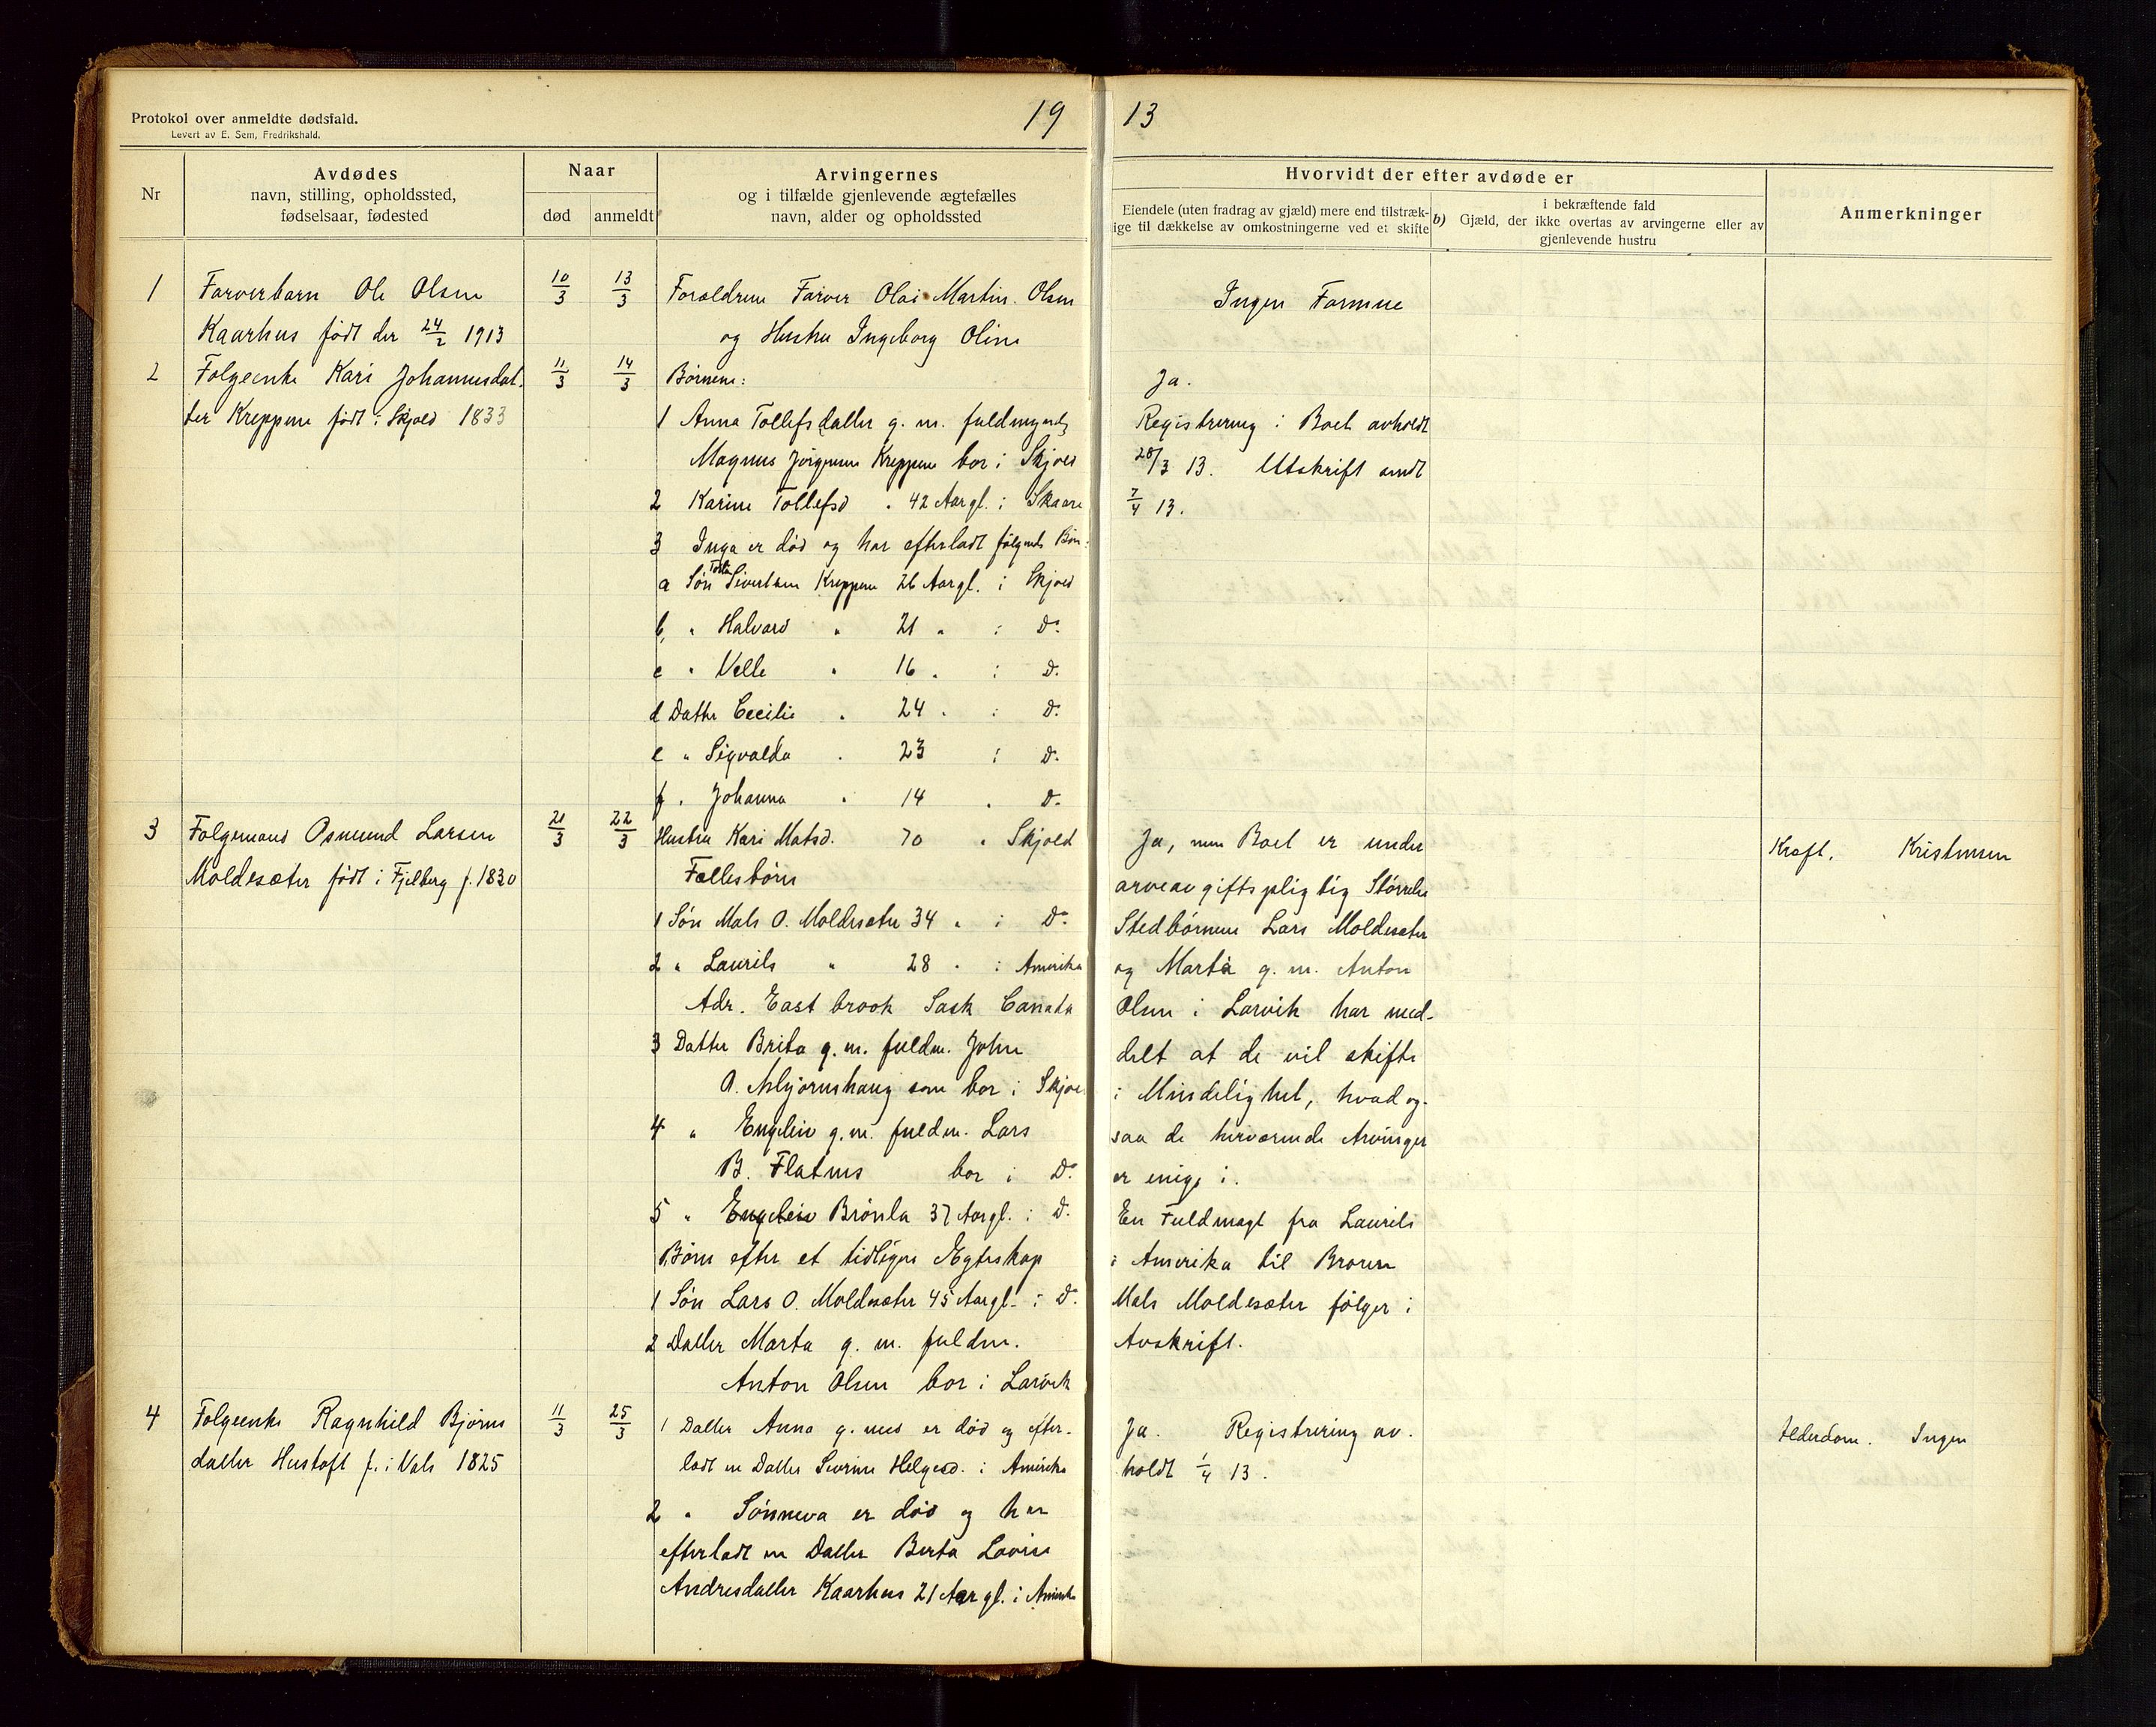 Protokol over anmeldte dødsfald.
Levert av E. Sem, Fredrikshald.
19 13
Nr
Avdødes
navn, stilling, opholdssted,
fødselsaar, fødested
Naar
død
anmeldt
Arvingernes
og i tilfælde gjenlevende ægtefælles
navn, alder og opholdssted
Hvorvidt der efter avdøde er
Eiendele (uten fradrag av gjæld) mere end tilstræk-
ige til dækkelse av omkostningerne ved et skifte
b)
i bekræftende fald
Gjæld, der ikke overtas av arvingerne eller av
gjenlevende hustru
Anmerkninger
1
Farverbarn Ole Olsen
Kaarhus født den 24/2 1913
10/3
13/3
Forældrene Farver Olai Martin Olsen
og Hustru Ingeborg Oline
Ingen Formue
2
Følgeenke Kari Johannesdat.
ter Kreppene født i Skjold 1833
11/3
14/3
Børnene:
1 Anna Tollefsdatter g. m. fuldmynd.
Magnus Jørgensen Kreppene bor i Skjold
2 Karine Tollefsd " 42 Aar gl. i Skaare
3 Inga er død og har efterladt følgende Børn:
a Søn Sivertsen Kreppene 26 Aar gl. i Skjold
b, " Halvard " 21 " i Do
c " Velle " 16 " i Do
d Datter Cecilie " 24 " i Do
e " Sigvalda " 23 i Do
f " Johanna " 14 " Do
Ja.
Registrering i Boet avholdt
28/3 13. Utskrift sendt
7/4 13.
3
Følgemand Osmund Larsen
Moldesæter født i Fjelberg f. 1830
21/3
22/3
Hustru Kari Matsd. 70 " Skjold
Fællesbørn
1 Søn Mats O. Moldesæter 34 " i Do
2 " Laurits " 28 " i Amerika
Adr. East brook Sask Canada
3 Datter Brita g. m. fuldm. John
A. Asbjørnshaug som bor i Skjol
4 " Engelev g. m. fuldm. Lars
B. Flatnes bor i Do
5 " Engelev Brønla 37 Aar gl. i Do
Børn efter et tidligere Egteskap
1 Søn Lars O. Moldesæter 45 Aar gl. i Do
2 Datter Marta g. m. fuldm.
Anton Olsen bor i Larvik
Ja, men Boet er under
arveavgiftspligtig Størrelse
Stedbørnene Lars Moldesæter
og Marta g. m. Anton
Olsen i Larvik har med-
delt at de vil skifte
i Mindelighet, hvad og-
saa de herværende Arvinger
er enige i.
En Fuldmagt fra Laurits
i Amerika til Broren
Mats Moldesæter følger i
Avskrift.
Kræft. Kristensen
4
Følgeenke Ragnhild Bjørns
datter Hustoft f. i Vats 1825
11/3
25/3
1 Datter Anna g. med er død og efter-
ladt en Datter Severine Helgesd. i Amerika
2 " Sønneva er død og har
efterladt en Datter Berta Lovise
Andresdatter Kaarhus 21 Aar gl. i Amerika
Ja. Registrering av.
holdt 1/4 13.
Alderdom. Ingen